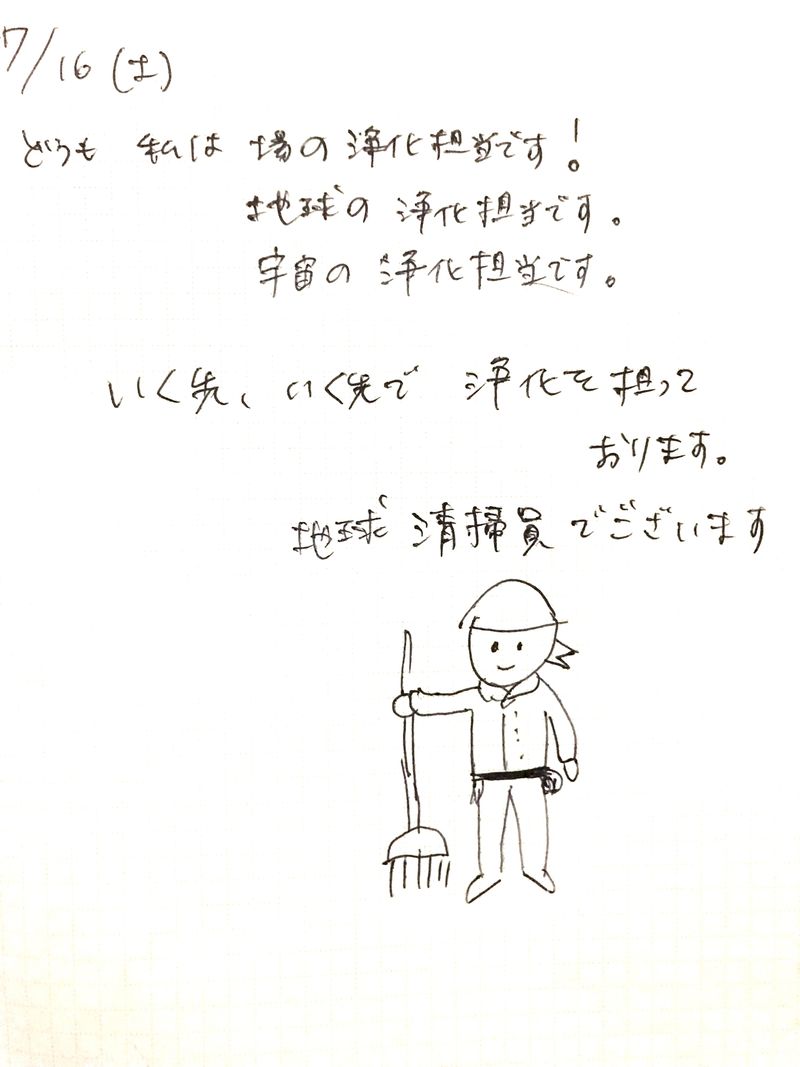 7/16 (土)
どうも 私は 場の 浄化担当です!
地球の 浄化担当です。
宇宙の 浄化担当です。
いく先、いく先で 浄化を 担って
おります。
地球 清掃員 でございます